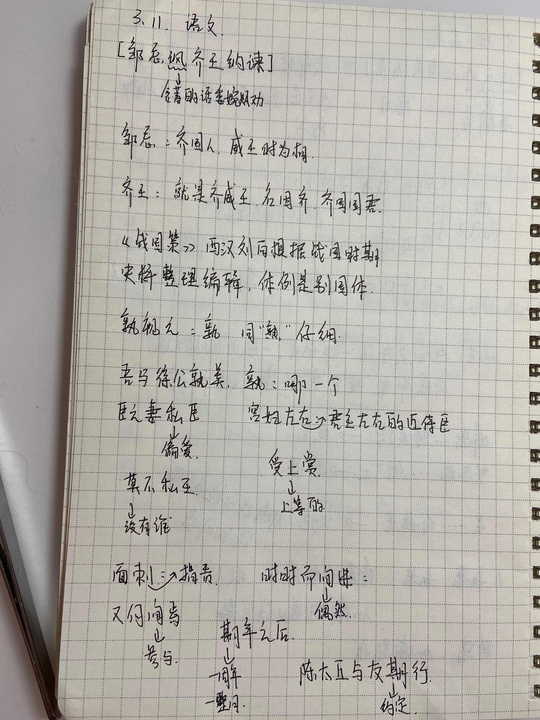 3.11. 语文.
[邹忌讽齐王纳谏]
含蓄的话委婉规劝
邹忌：齐国人，威王时为相.
齐王：就是齐威王 名因齐 齐国国君.
《战国策》西汉刘向根据战国时期
史料整理编辑，体例是别国体.
孰视之：孰 同“熟” 仔细.
吾与徐公孰美，孰：哪一个
臣之妻私臣 宫妇左右→君主左右的近侍臣
偏爱.
受上赏
上等的
莫不私王
没有谁
面刺：→指责. 时时而间进：
偶然.
又何间焉
参与.
期年之后.
一周年
一整月.
陈太丘与友期行.
约定.